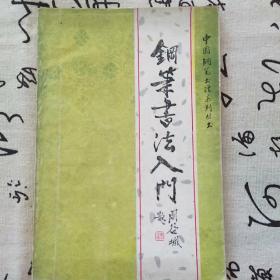 中国钢笔书法系列丛书
鋼筆書法入門
周谷城
题